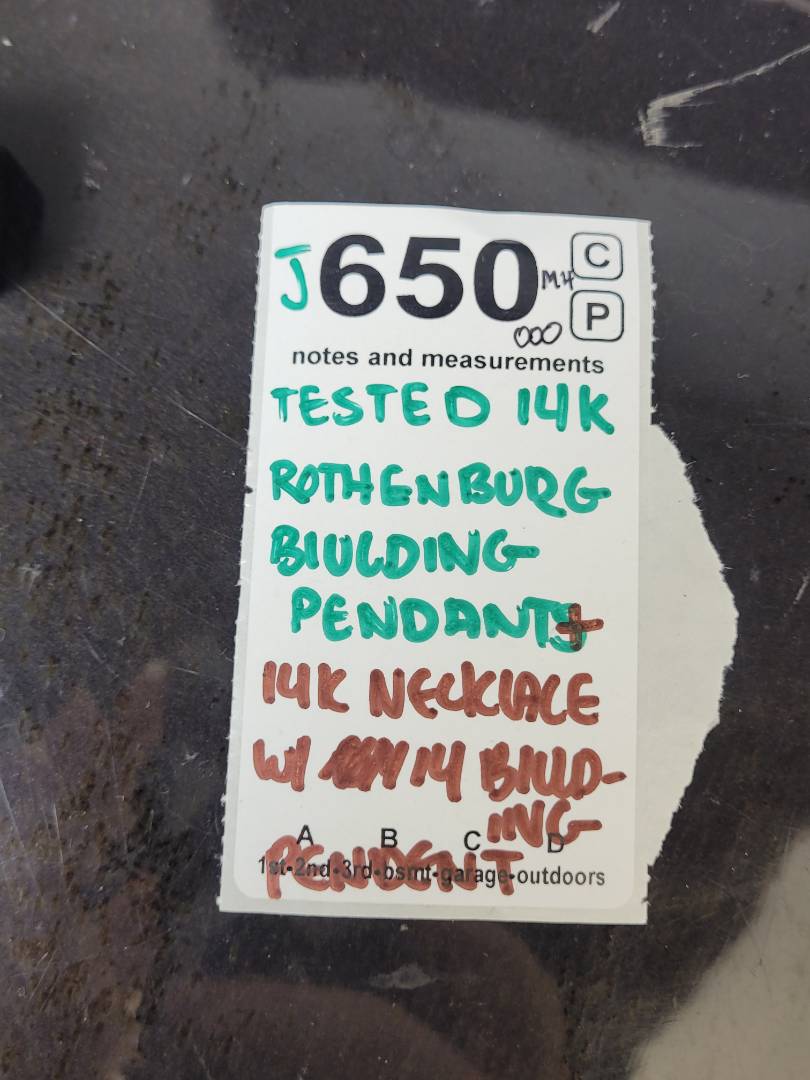 J650 M4 C
000 P
notes and measurements
TESTED 14K
ROTHENBURG
BIULDING
PENDANT+
14K NECKLACE
W/ 14 BIULD-
ING
A B C D
PENDENT
1st-2nd-3rd-bsmt-garage-outdoors